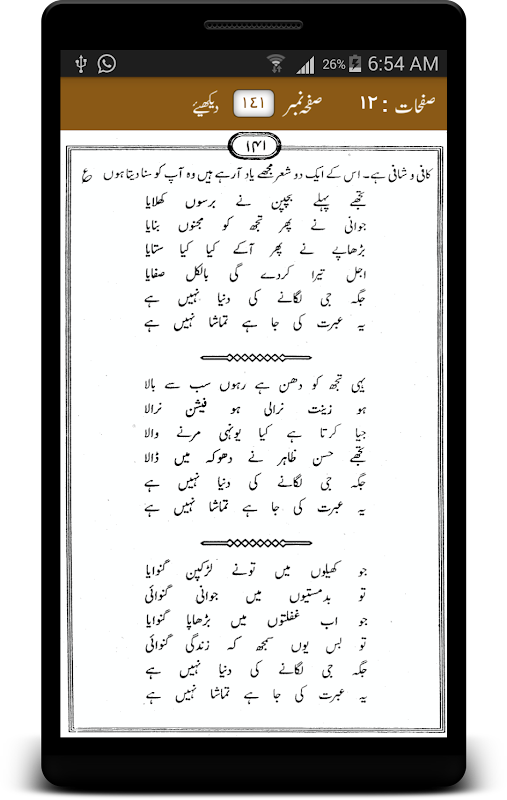 26% 6:54 AM
صفحات : ۱۲ صفحہ نمبر ١٤١ دیکھیئے
۱۴۱
کافی و شافی ہے۔ اس کے ایک دو شعر مجھے یاد آرہے ہیں وہ آپ کو سنا دیتا ہوں ع
تجھے پہلے بچپن نے برسوں کھلایا
جوانی نے پھر تجھ کو مجنوں بنایا
بڑھاپے نے پھر آکے کیا کیا ستایا
اجل تیرا کردے گی بالکل صفایا
جگہ جی لگانے کی دنیا نہیں ہے
یہ عبرت کی جا ہے تماشا نہیں ہے
یہی تجھ کو دھن ہے رہوں سب سے بالا
ہو زینت نرالی ہو فیشن نرالا
جیا کرتا ہے کیا یونہی مرنے والا
تجھے حسن ظاہر نے دھوکہ میں ڈالا
جگہ جی لگانے کی دنیا نہیں ہے
یہ عبرت کی جا ہے تماشا نہیں ہے
جو کھیلوں میں تونے لڑکپن گنوایا
تو بدمستیوں میں جوانی گنوائی
جو اب غفلتوں میں بڑھاپا گنوایا
تو بس یوں سمجھ کہ زندگی گنوائی
جگہ جی لگانے کی دنیا نہیں ہے
یہ عبرت کی جا ہے تماشا نہیں ہے